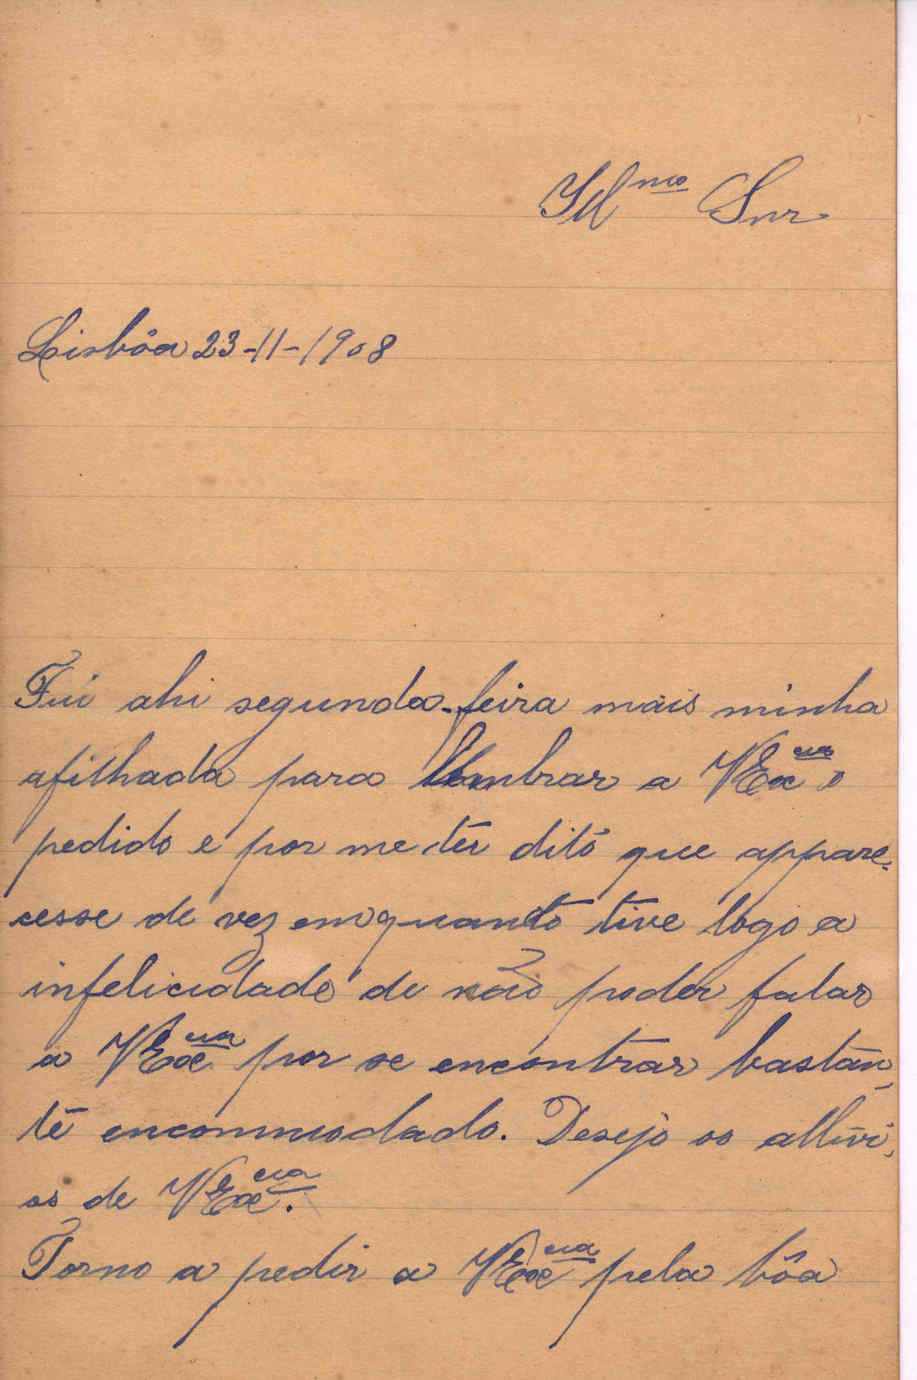 Illmo Snr
Lisbôa 23-11-1908
Fui ahi segunda-feira mais minha
afilhada para lembrar a VExcia o
pedido e por me ter dito que appare-
cesse de vez emquanto tive logo a
infelicidade de não poder falar
a VExcia por se encontrar bastan-
te encommodado. Desejo os allivi-
os de VExcia.
Torno a pedir a VExcia pela bôa